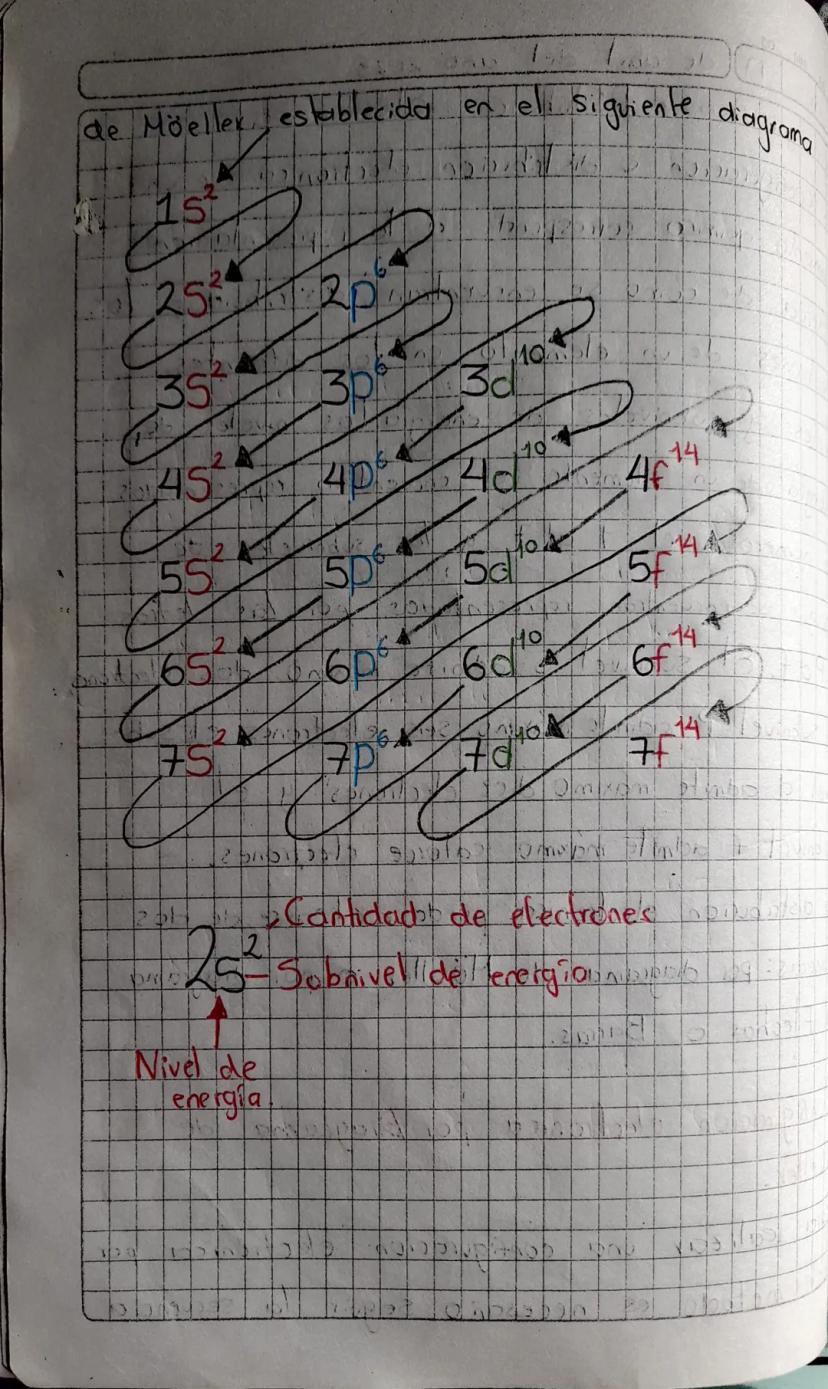 de Möeller establecida en el siguiente diagrama
1s²
2s² 2p⁶
3s² 3p⁶ 3d¹⁰
4s² 4p⁶ 4d¹⁰ 4f¹⁴
5s² 5p⁶ 5d¹⁰ 5f¹⁴
6s² 6p⁶ 6d¹⁰ 6f¹⁴
7s² 7p⁶ 7d¹⁰ 7f¹⁴
Cantidad de electrones
2s² Subnivel de energía
Nivel de
energía